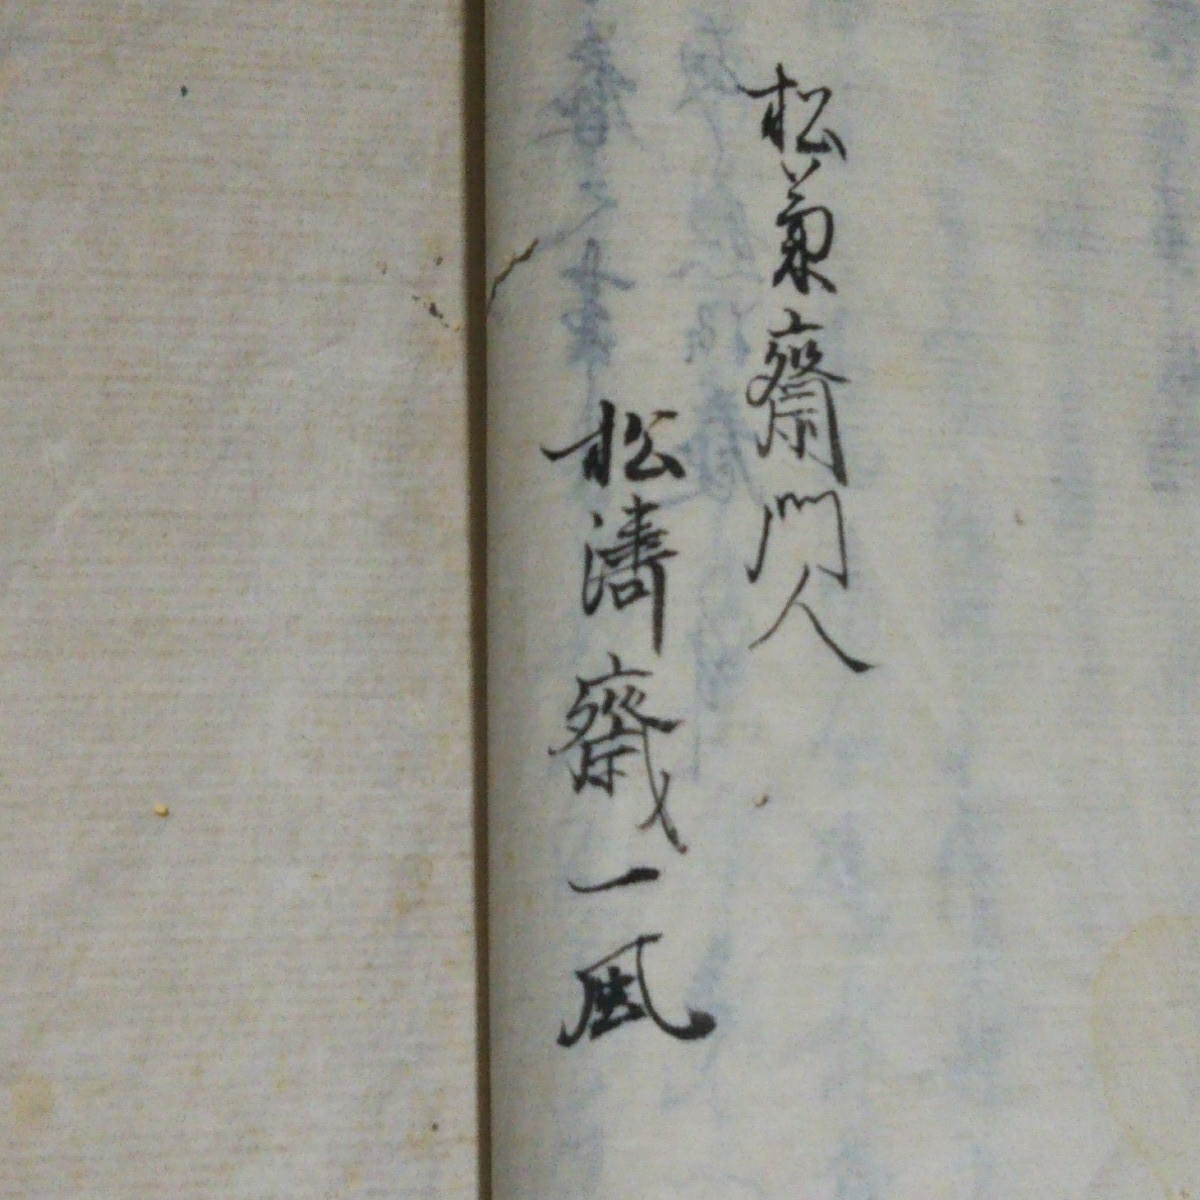 松菊齋門人
松濤齋一風